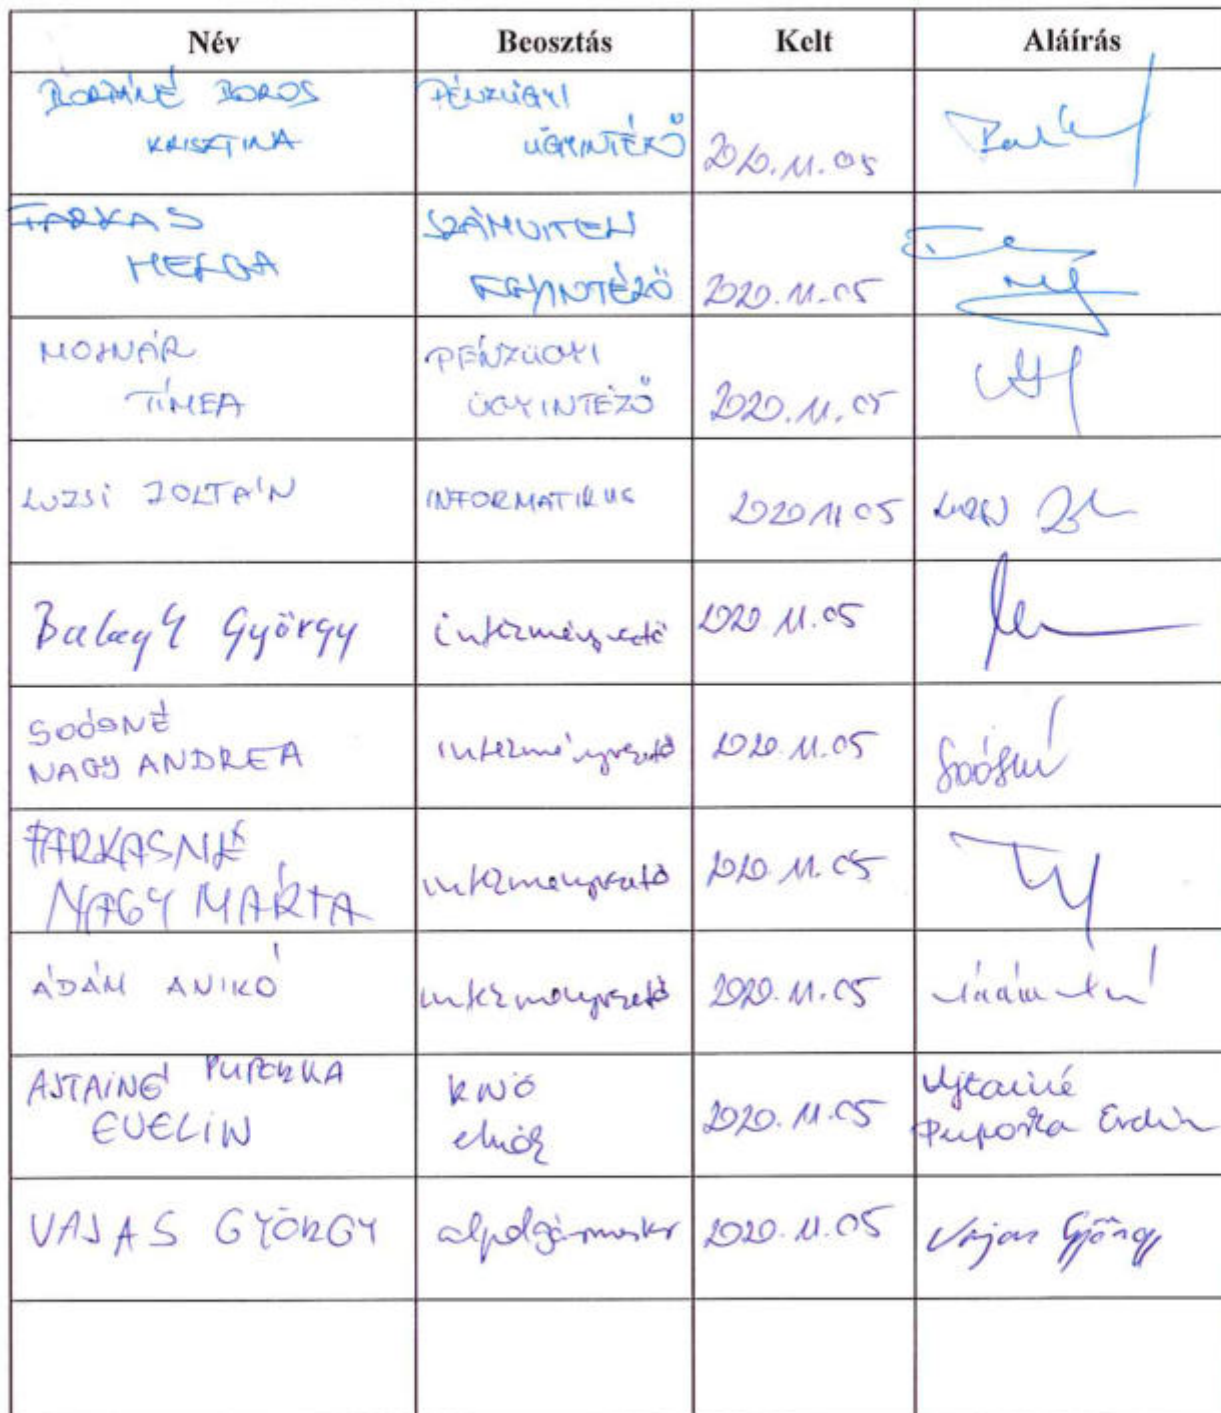 Név Beosztás Kelt Aláírás
BOROS PÉNZÜGYI
KRISZTINA ÜGYINTÉZŐ 2020.11.05
FARKAS SZÁMVITELI
HELGA ÜGYINTÉZŐ 2020.11.05
MOLNÁR PÉNZÜGYI
TÍMEA ÜGYINTÉZŐ 2020.11.05
LUZSI ZOLTÁN INFORMATIKUS 2020 11 05
Balogh György intézményvezető 2020 11.05
SOÓSNÉ
NAGY ANDREA intézményvezető 2020.11.05 Soósné
FARKASNÉ
NAGY MÁRTA intézményvezető 2020.11.05
ÁDÁM ANIKÓ intézményvezető 2020.11.05
AJTAINÉ PUPORKA RNÖ Ajtainé
EVELIN elnök 2020.11.05 Puporka Evelin
VAJAS GYÖRGY alpolgármester 2020.11.05 Vajas György